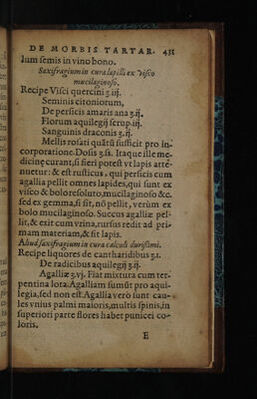 DE MORBIS TARTAR. 431
lum semis in vino bono.
Saxifragium in cura lapilli ex Visco
mucilaginoso.
Recipe Visci quercini ʒ iij.
Seminis citoniorum,
De persicis amaris ana ʒ.ij.
Florum aquilegij scrup.iij.
Sanguinis draconis ʒ.ij.
Mellis rosati quãtũ sufficit pro in-
corporatione. Dosis ʒ.ß. Itaque ille me-
dicinę curant, si fieri potest vt lapis atté-
nuetur: & est rusticus, qui persicis cum
agallia pellit omnes lapides, qui sunt ex
visco & bolo resoluto, mucilaginoso &c.
sed ex gemma, si sit, nõ pellit, verùm ex
bolo mucilaginoso. Succus agalliæ pel-
lit, & exit cum vrina, rursus redit ad pri-
mam materiam, & fit lapis.
Aliud saxifragium in cura calculi durissimi.
Recipe liquores de cantharidibus ʒ.i.
De radicibus aquilegij ʒ.ij.
Agalliæ ʒ.vj. Fiat mixtura cum ter-
pentina lota. Agalliam sumũt pro aqui-
legia, sed non est. Agallia verò sunt cau-
les vnius palmi maioris, multis spinis, in
superiori parte flores habet punicei co-
loris.
E